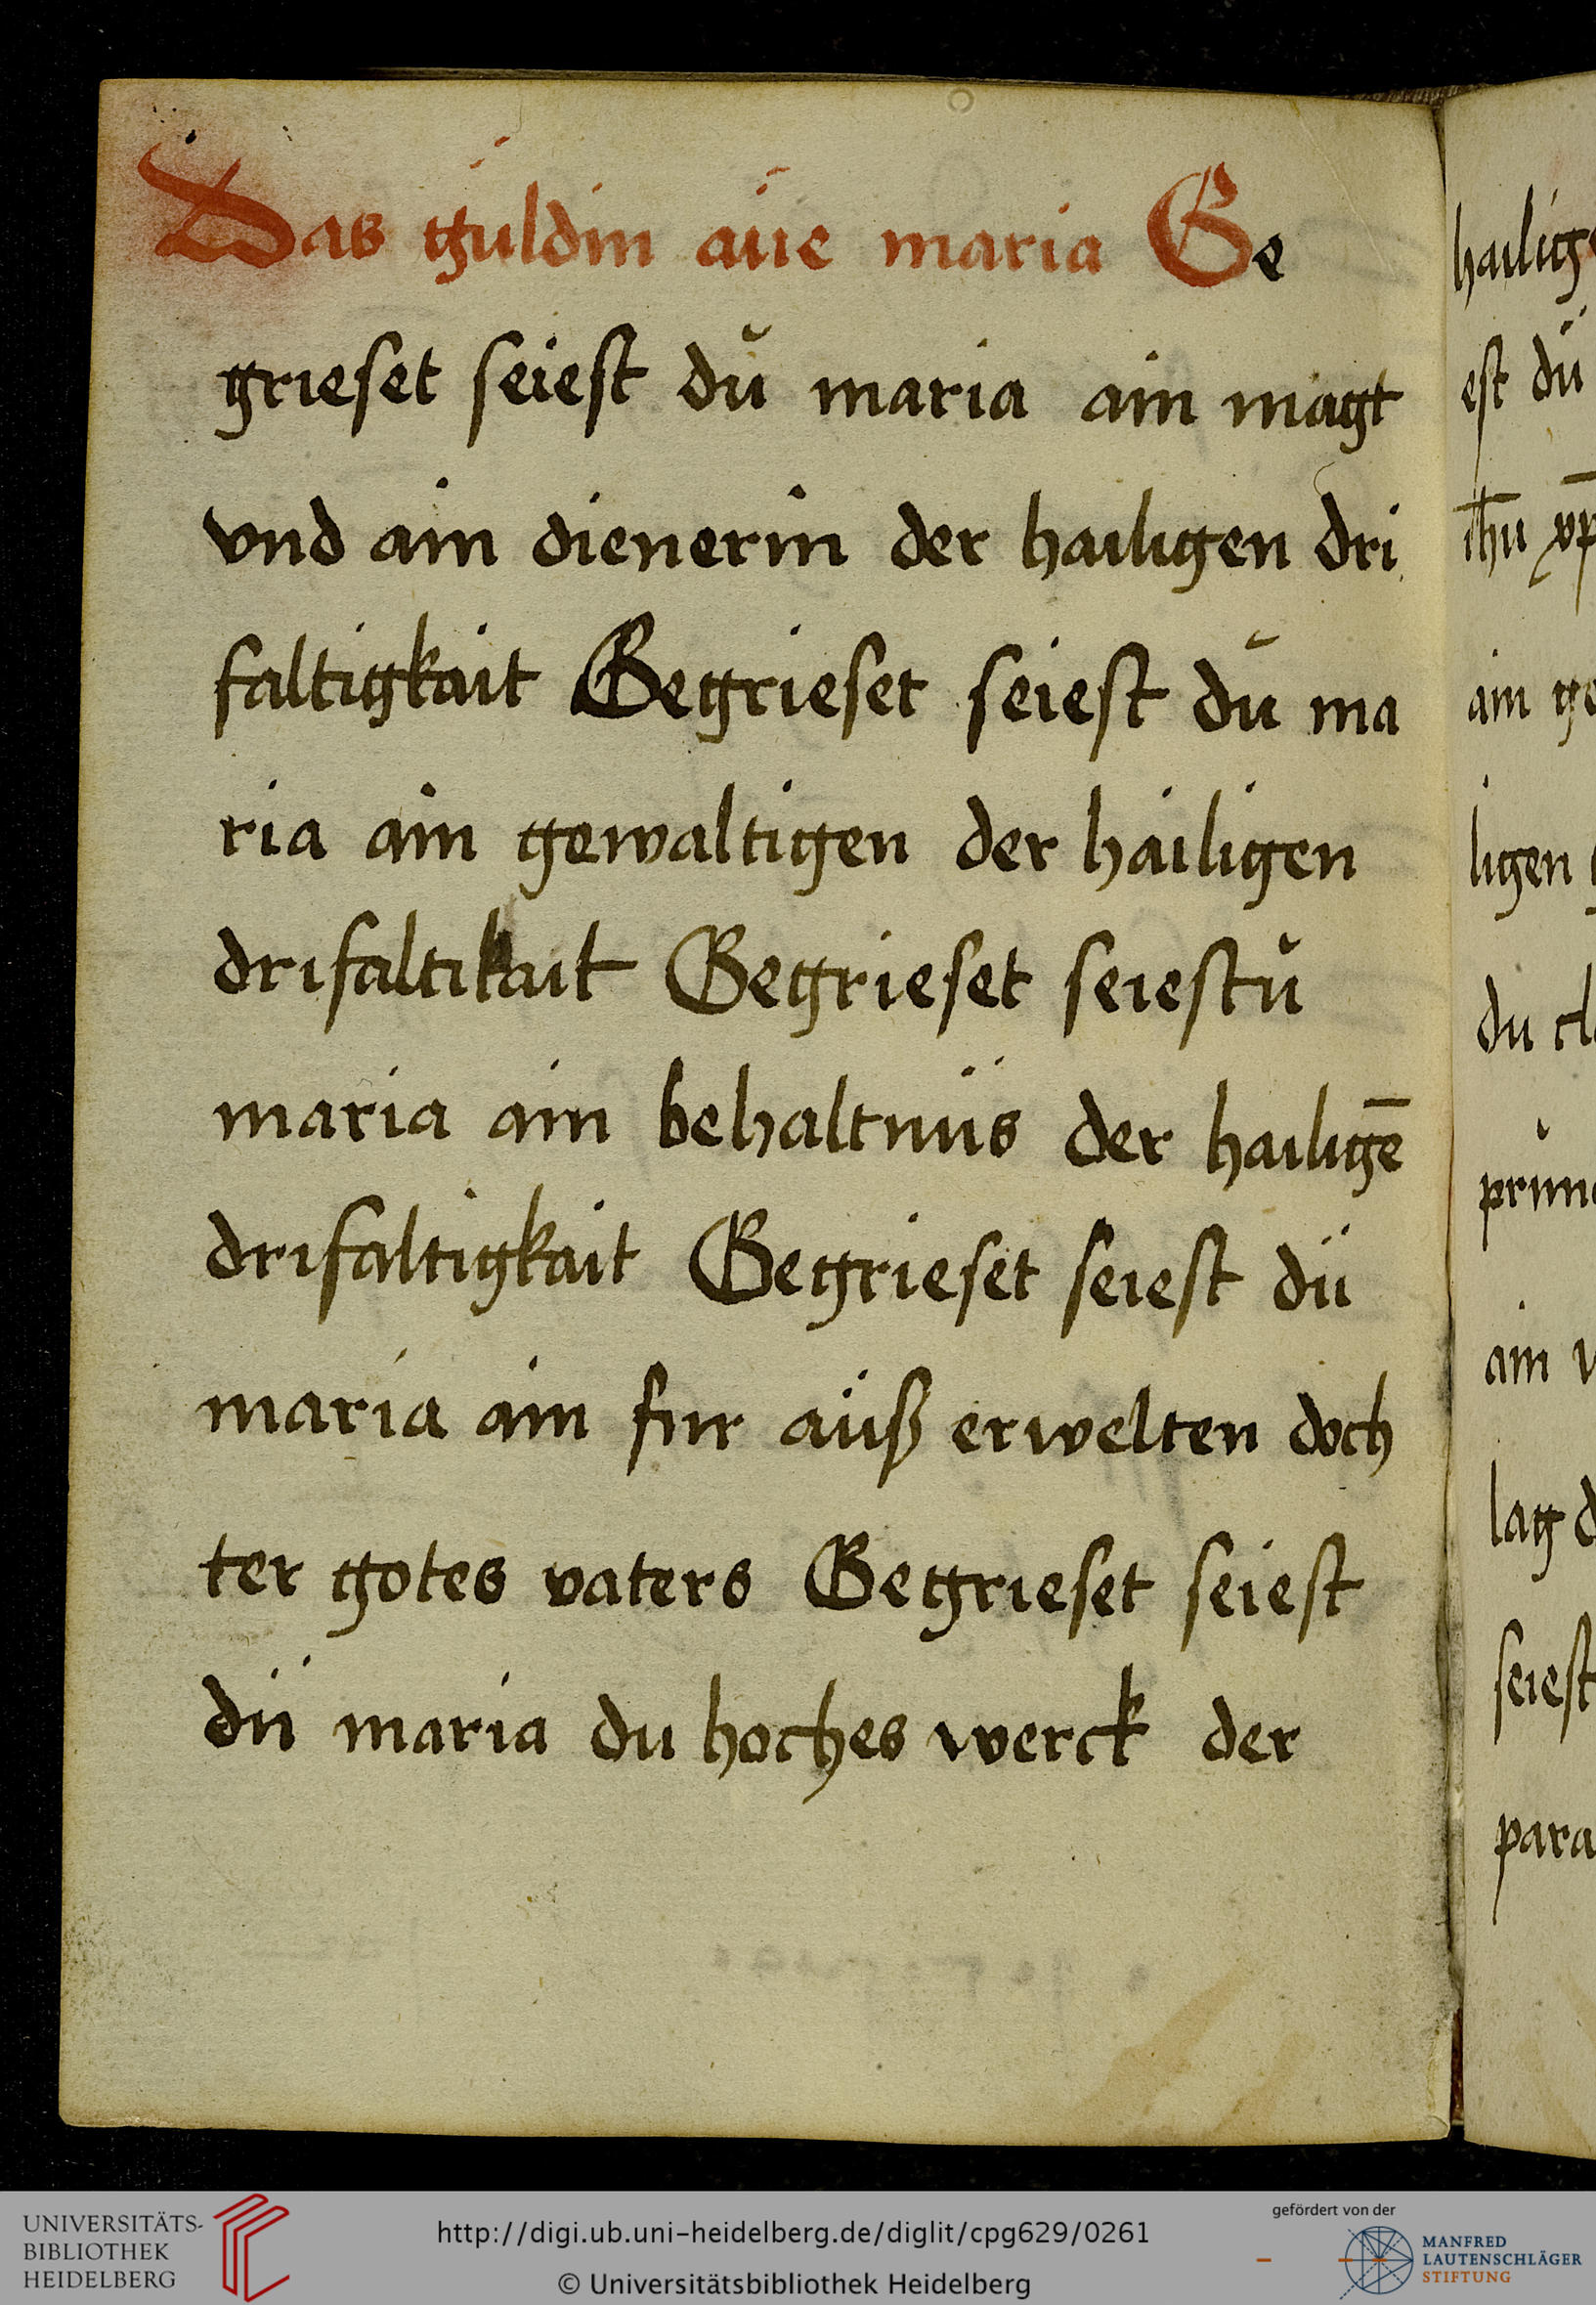 Das guldin aue maria Ge
grieset seiest dŭ maria ain magt
vnd ain dienerin der hailigen dri
faltigkait Gegrieset seiest dŭ ma
ria ain gewaltigen der hailigen
drifaltikait Gegrieset seiestŭ
maria ain behaltniis der hailigē
drifaltigkait Gegrieset seiest dü
maria ain fur auß erwelten doch
ter gotes vaters Gegrieset seiest
dü maria du hoches werck der
hailig
est dü
ihu xp
ain ge
ligen
du cl
prun
ain
lag d
seiest
para
UNIVERSITÄTS-
BIBLIOTHEK
HEIDELBERG
http://digi.ub.uni-heidelberg.de/diglit/cpg629/0261
© Universitätsbibliothek Heidelberg
gefördert von der
MANFRED
LAUTENSCHLÄGER
STIFTUNG